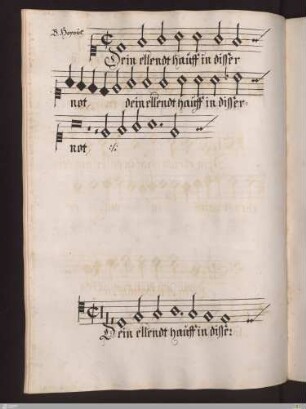 Dein ellendt hauff in disser
not dein ellendt hauff in disser
not :/:
Dein ellendt hauff in disse: